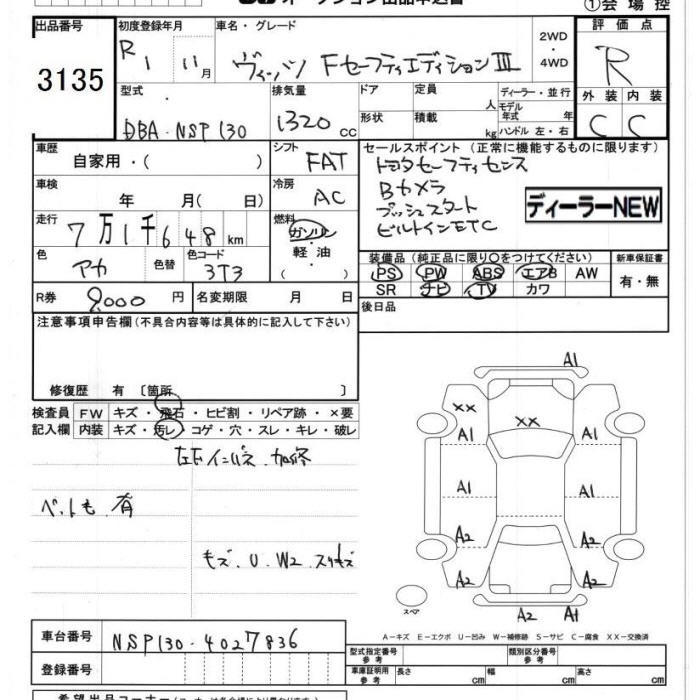 オークション出品申込書
①会場控
出品番号 3135
初度登録年月 R1 11月
車名・グレード ヴィッツ Fセーフティエディション III
2WD・4WD
評価点 R
外装 C 内装 C
型式 DBA-NSP130
排気量 1320 cc
ドア
形状
定員 人
積載 kg
ディーラー・並行
モデル年式 年
ハンドル 左・右
車歴 自家用・( )
シフト FAT
車検 年 月( 日)
冷房 AC
走行 7万1千648km
燃料 ガソリン・軽油・( )
色 アカ 色替 色コード 3T3
R券 9000円 名変期限 月 日
セールスポイント (正常に機能するものに限ります)
トヨタセーフティセンス
Bカメラ
プッシュスタート
ビルトインETC
ディーラーNEW
装備品 (純正品に限り○をつけてください) 新車保証書
PS PW ABS エアB AW 有・無
SR ナビ TV カワ
後日品
注意事項申告欄 (不具合内容等は具体的に記入して下さい)
修復歴 有 〔箇所 〕
検査員 FW キズ・飛石・ヒビ割・リペア跡・×要
記入欄 内装 キズ・汚レ・コゲ・穴・スレ・キレ・破レ
左Fインパネ.加修
ペットも 有
キズ.U.W2.スリキズ
A1
XX XX
A1 A1
A1 A1
A2 A2
A2 A2
スペア
A2 A1
A-キズ E-エクボ U-凹み W-補修跡 S-サビ C-腐食 XX-交換済
車台番号 NSP130-4027836
登録番号
型式指定番号 参考
類別区分番号 参考
車庫証明用 参考 長さ cm 幅 cm 高さ cm
希望出品コーナー